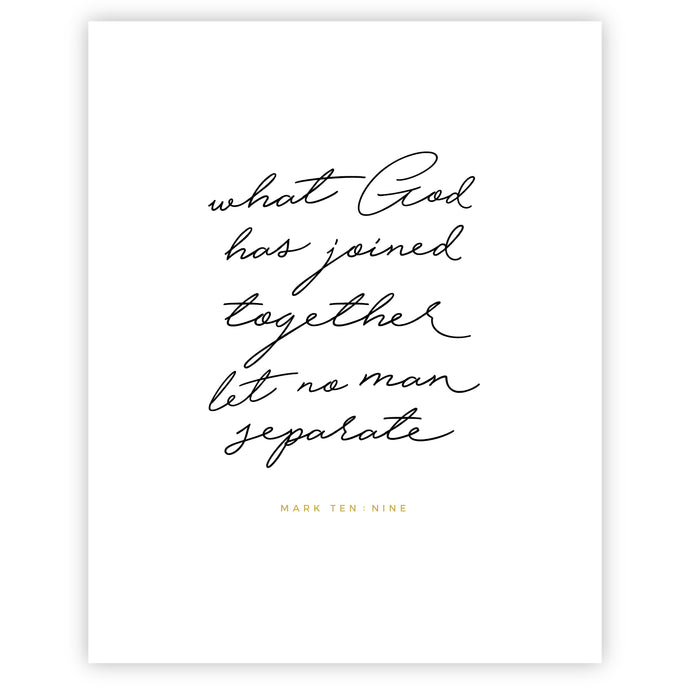 what God
has joined
together
let no man
separate
MARK TEN:NINE